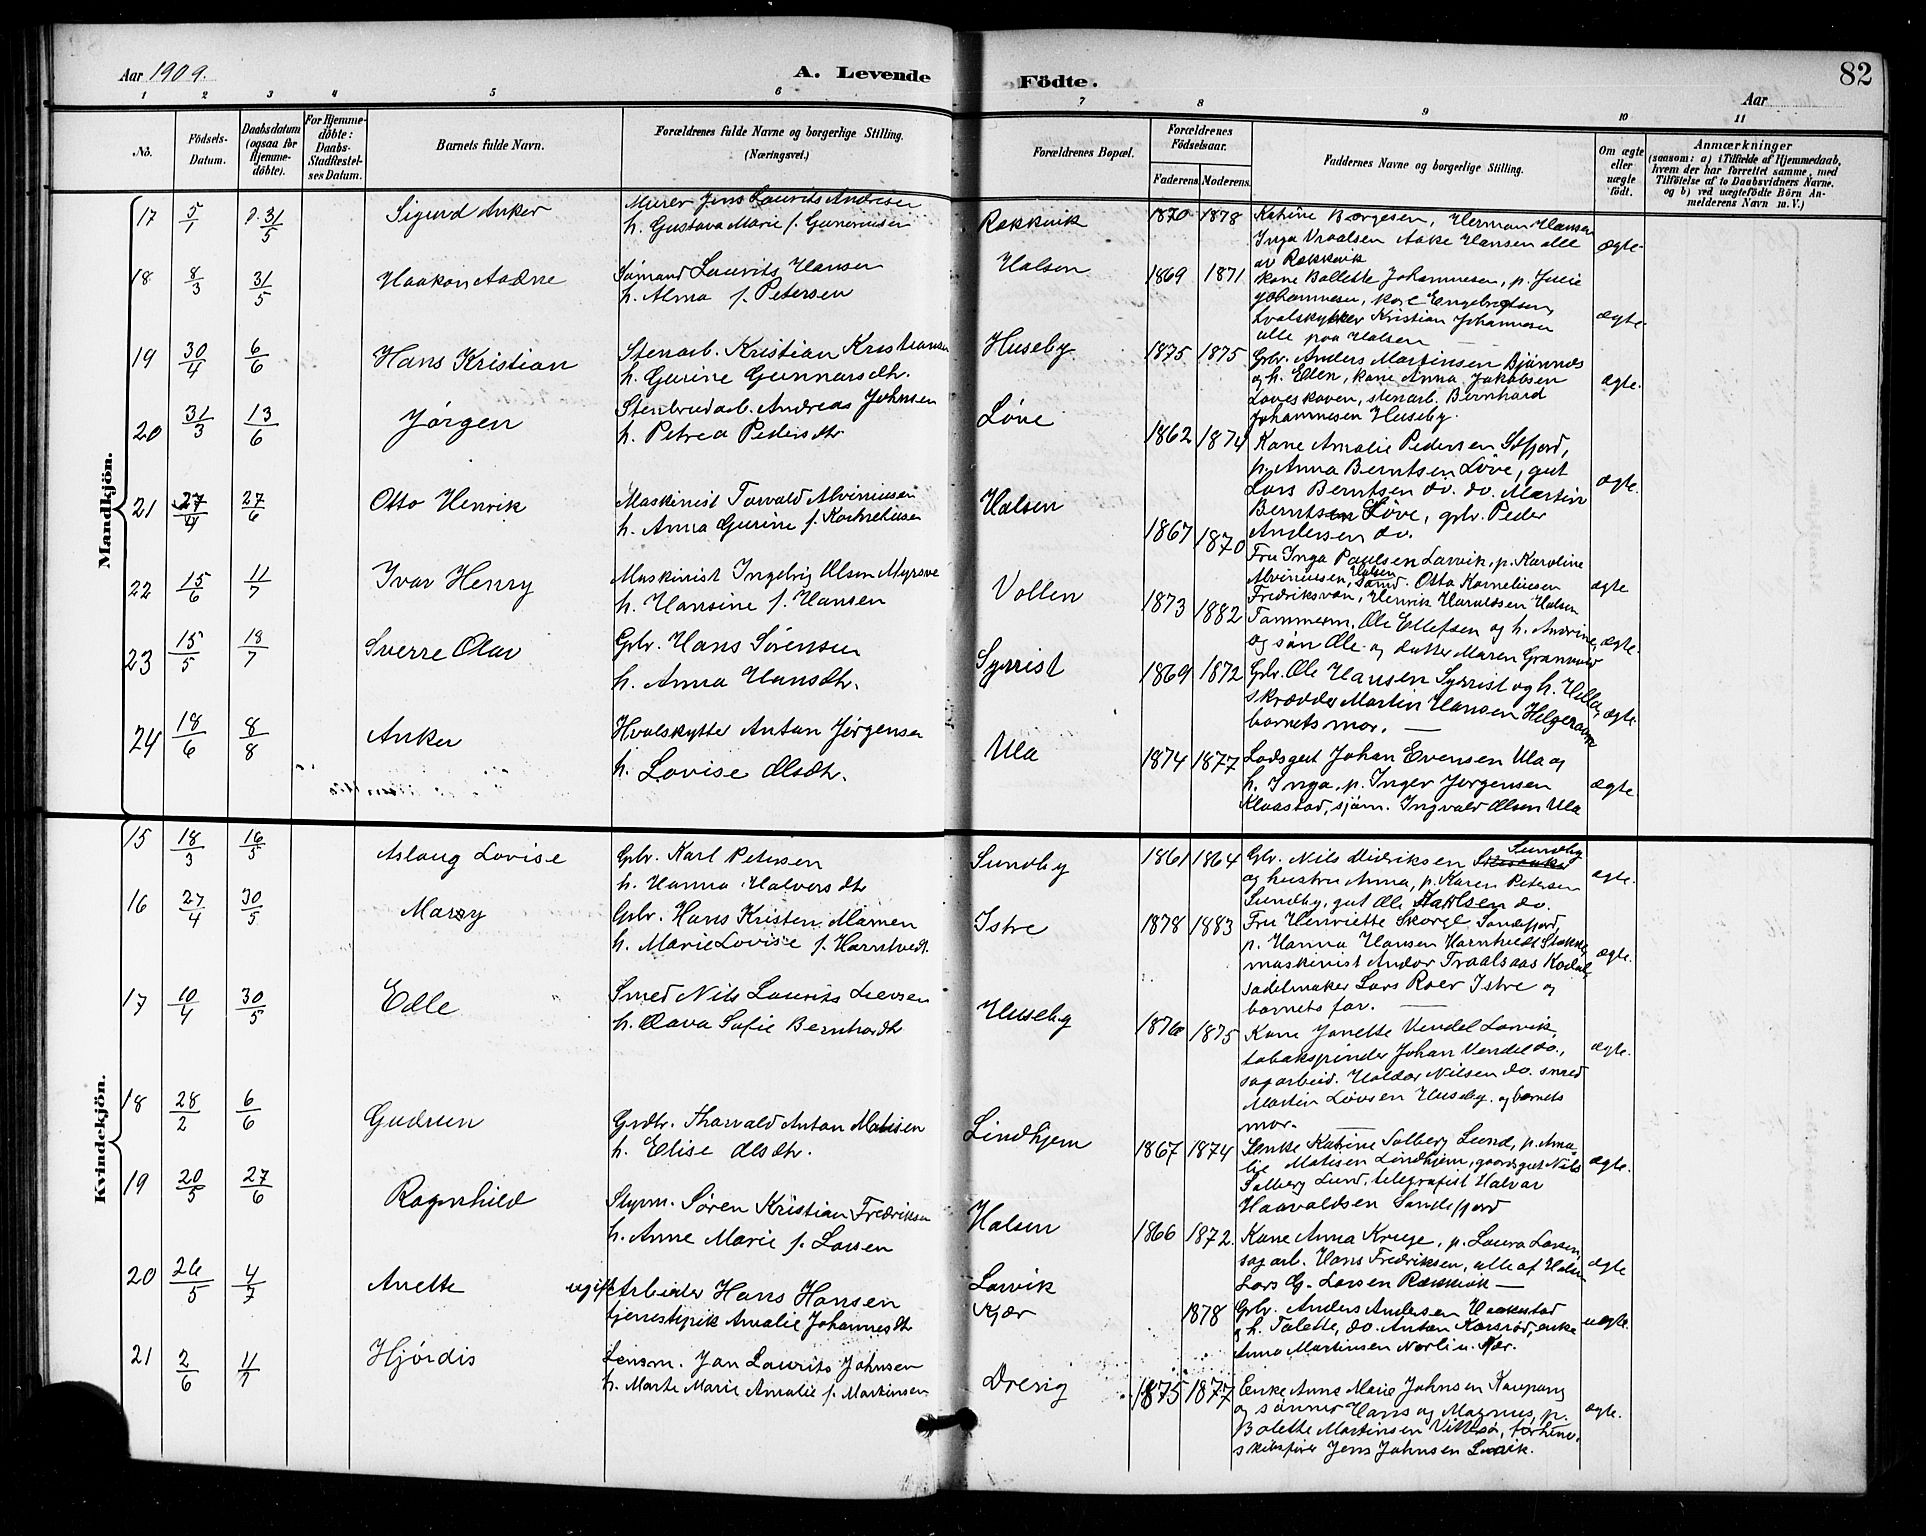 Aar 1909.
A. Levende Födte.
82
Aar
1 2 3 4 5 6 7 8 9 10 11
No.
Födsels-Datum.
Daabsdatum (ogsaa for Hjemme-döbte).
For Hjemme-döbte: Daabs-Stadfæstel-ses Datum.
Barnets fulde Navn.
Forældrenes fulde Navne og borgerlige Stilling. (Næringsvei.)
Forældrenes Bopæl.
Forældrenes Födselsaar.
Faderens. Moderens.
Faddernes Navne og borgerlige Stilling.
Om ægte eller uægte födt.
Anmærkninger
(saasom: a) i Tilfælde af Hjemmedaab, hvem der har forrettet samme, med Tilföielse af to Daabsvidners Navne, og b) ved uægtefödte Börn An-melderens Navn m. V.)
Mandkjön.
17 5/1 31/5 Sigurd Anker
Murer Jens Laurits Andresen
h. Gustava Marie f. Guneriusen
Rækkevik 1870 1878
Katrine Børgesen, Herman Hansen
Inga Vraalsen Aake Hansen alle
av Rækkevik
ægte.
18 8/3 31/5 Haakon Aadne
Sømand Laurits Hansen
h. Alma f. Petersen
Halsen 1869 1871
Kone Bollette Johannesen, p. Julie
Johannesen, Karl Engebretsen,
hvalskytter Kristian Johannesen
alle paa Halsen
ægte.
19 30/4 6/6 Hans Kristian
Stenarb. Kristian Kristiansen
h. Gurine Gunnarsdtr.
Huseby 1875 1875
Grbr. Anders Martinsen Bjønnes
og h. Ellen, kone Anna Jakobsen
Løveskoven, stenarb. Bernhard
Johannesen Huseby.
ægte.
20 31/3 13/6 Jørgen
Stenbrudarb. Andreas Johnsen
h. Petrea Pedersdtr
Løve 1862 1874
Kone Amalie Pedersen
p. Anna Berntsen Løve, gut
Lars Berntsen do. do. Martin
Berntsen Løve, grbr. Peder
Andersen do.
ægte.
21 27/4 27/6 Otto Henrik
Maskinist Torvald Alviniusen
h. Anna Gurine f. Korneliusen
Halsen 1867 1870
Fru Inga Paulsen Larvik, p. Karoline
Alviniusen, Halsen sømd. Otto Korneliusen
Fredriksvæn, Henrik Haraldsen Halsen
ægte
22 15/6 11/7 Ivar Henry
Maskinist Ingebrig Olsen
h. Hansine f. Hansen
Vollen 1873 1882
Tømmerm. Ole Ellefsen og h. Andrine,
og søn Ole og datter Maren
ægte.
23 15/5 18/7 Sverre Olav
Grbr. Hans Sørensen
h. Anna Hansdtr.
Syrrist 1869 1872
Grbr. Ole Hansen Syrrist og h. Hella,
skrædder Martin Hansen Helgeraaen
barnets mor.
ægte.
24 18/6 8/8 Anker
Hvalskytte Anton Jørgensen
h. Lovise Olsdtr.
Ula 1874 1877
Lodsgut Johan Evensen Ula og
h. Inga, p. Inger Jørgensen
Klaastad, sjøm. Ingvald Olsen Ula
ægte
Kvindekjön.
15 18/3 16/5 Aslaug Lovise
Grbr. Karl Petersen
h. Hanna Halversdtr
Sundby 1861 1864
Grbr. Nils Didriksen Sundby
og hustru Anna, p. Karen Petersen
Sundby, gut Ole Karlsen do.
ægte.
16 27/4 30/5 Marry
Grbr. Hans Kristen Mamen
h. Marie Lovise f. Harntvedt
Istre 1878 1883
Fru Henriette Skorge Sandefjord,
p. Hanna Hansen Harntvedt Stokke,
maskinist Andor Traalsaas Kodal,
sadelmaker Lars Roer Istre og
barnets far.
ægte.
17 10/4 30/5 Edle
Smed Nils Laurits Liensen
h. Olava Sofie Bernhardtr
Huseby 1870 1875
Kone Janette Vendel Larvik,
tobakspinder Johan Vendel do.,
sagarbeid. Haldor Nilsen do. smed
Martin Løvsen Huseby. og barnets
mor.
ægte.
18 28/2 6/6 Gudrun
Grdbr. Thorvald Anton Matisen
h. Elise Olsdtr.
Lindhjem 1867 1874
Enke Katrine Solberg Lund, p. Ama-
lie Matisen Lindhjem, gaardsgut Nils
Solberg Lund, telegrafist Halvar
Haavaldsen Sandefjord
ægte.
19 20/5 27/6 Ragnhild
Styrm. Søren Kristian Fredriksen
h. Anne Marie f. Larsen
Halsen 1866 1872.
Kone Anna Kruge, p. Laura Larsen,
sagarb. Hans Fredriksen, alle af Halsen
Lars G. Larsen Rækkevik
ægte
20 26/5 4/7 Anette
ugift Arbeider Hans Hansen
tjenestepik Amalie Johannesdtr
Larvik
Kjær 1878
Grbr. Anders Andersen Haakestad
og h. Talette, do. Anton Karsrød, enke
Anna Martinsen Nerli u. Kjær.
uægte.
21 2/6 11/7 Hjørdis
Lensm. Jan Laurits Johnsen
h. Marte Marie Amalie f. Martinsen
1875 1877
Enke Anne Marie Johnsen Kaupang
og sønner Hans og Magnus, p.
Bolette Martinsen Vittersø, forhenv.
skibsfører Jens Johnsen Larvik.
ægte.